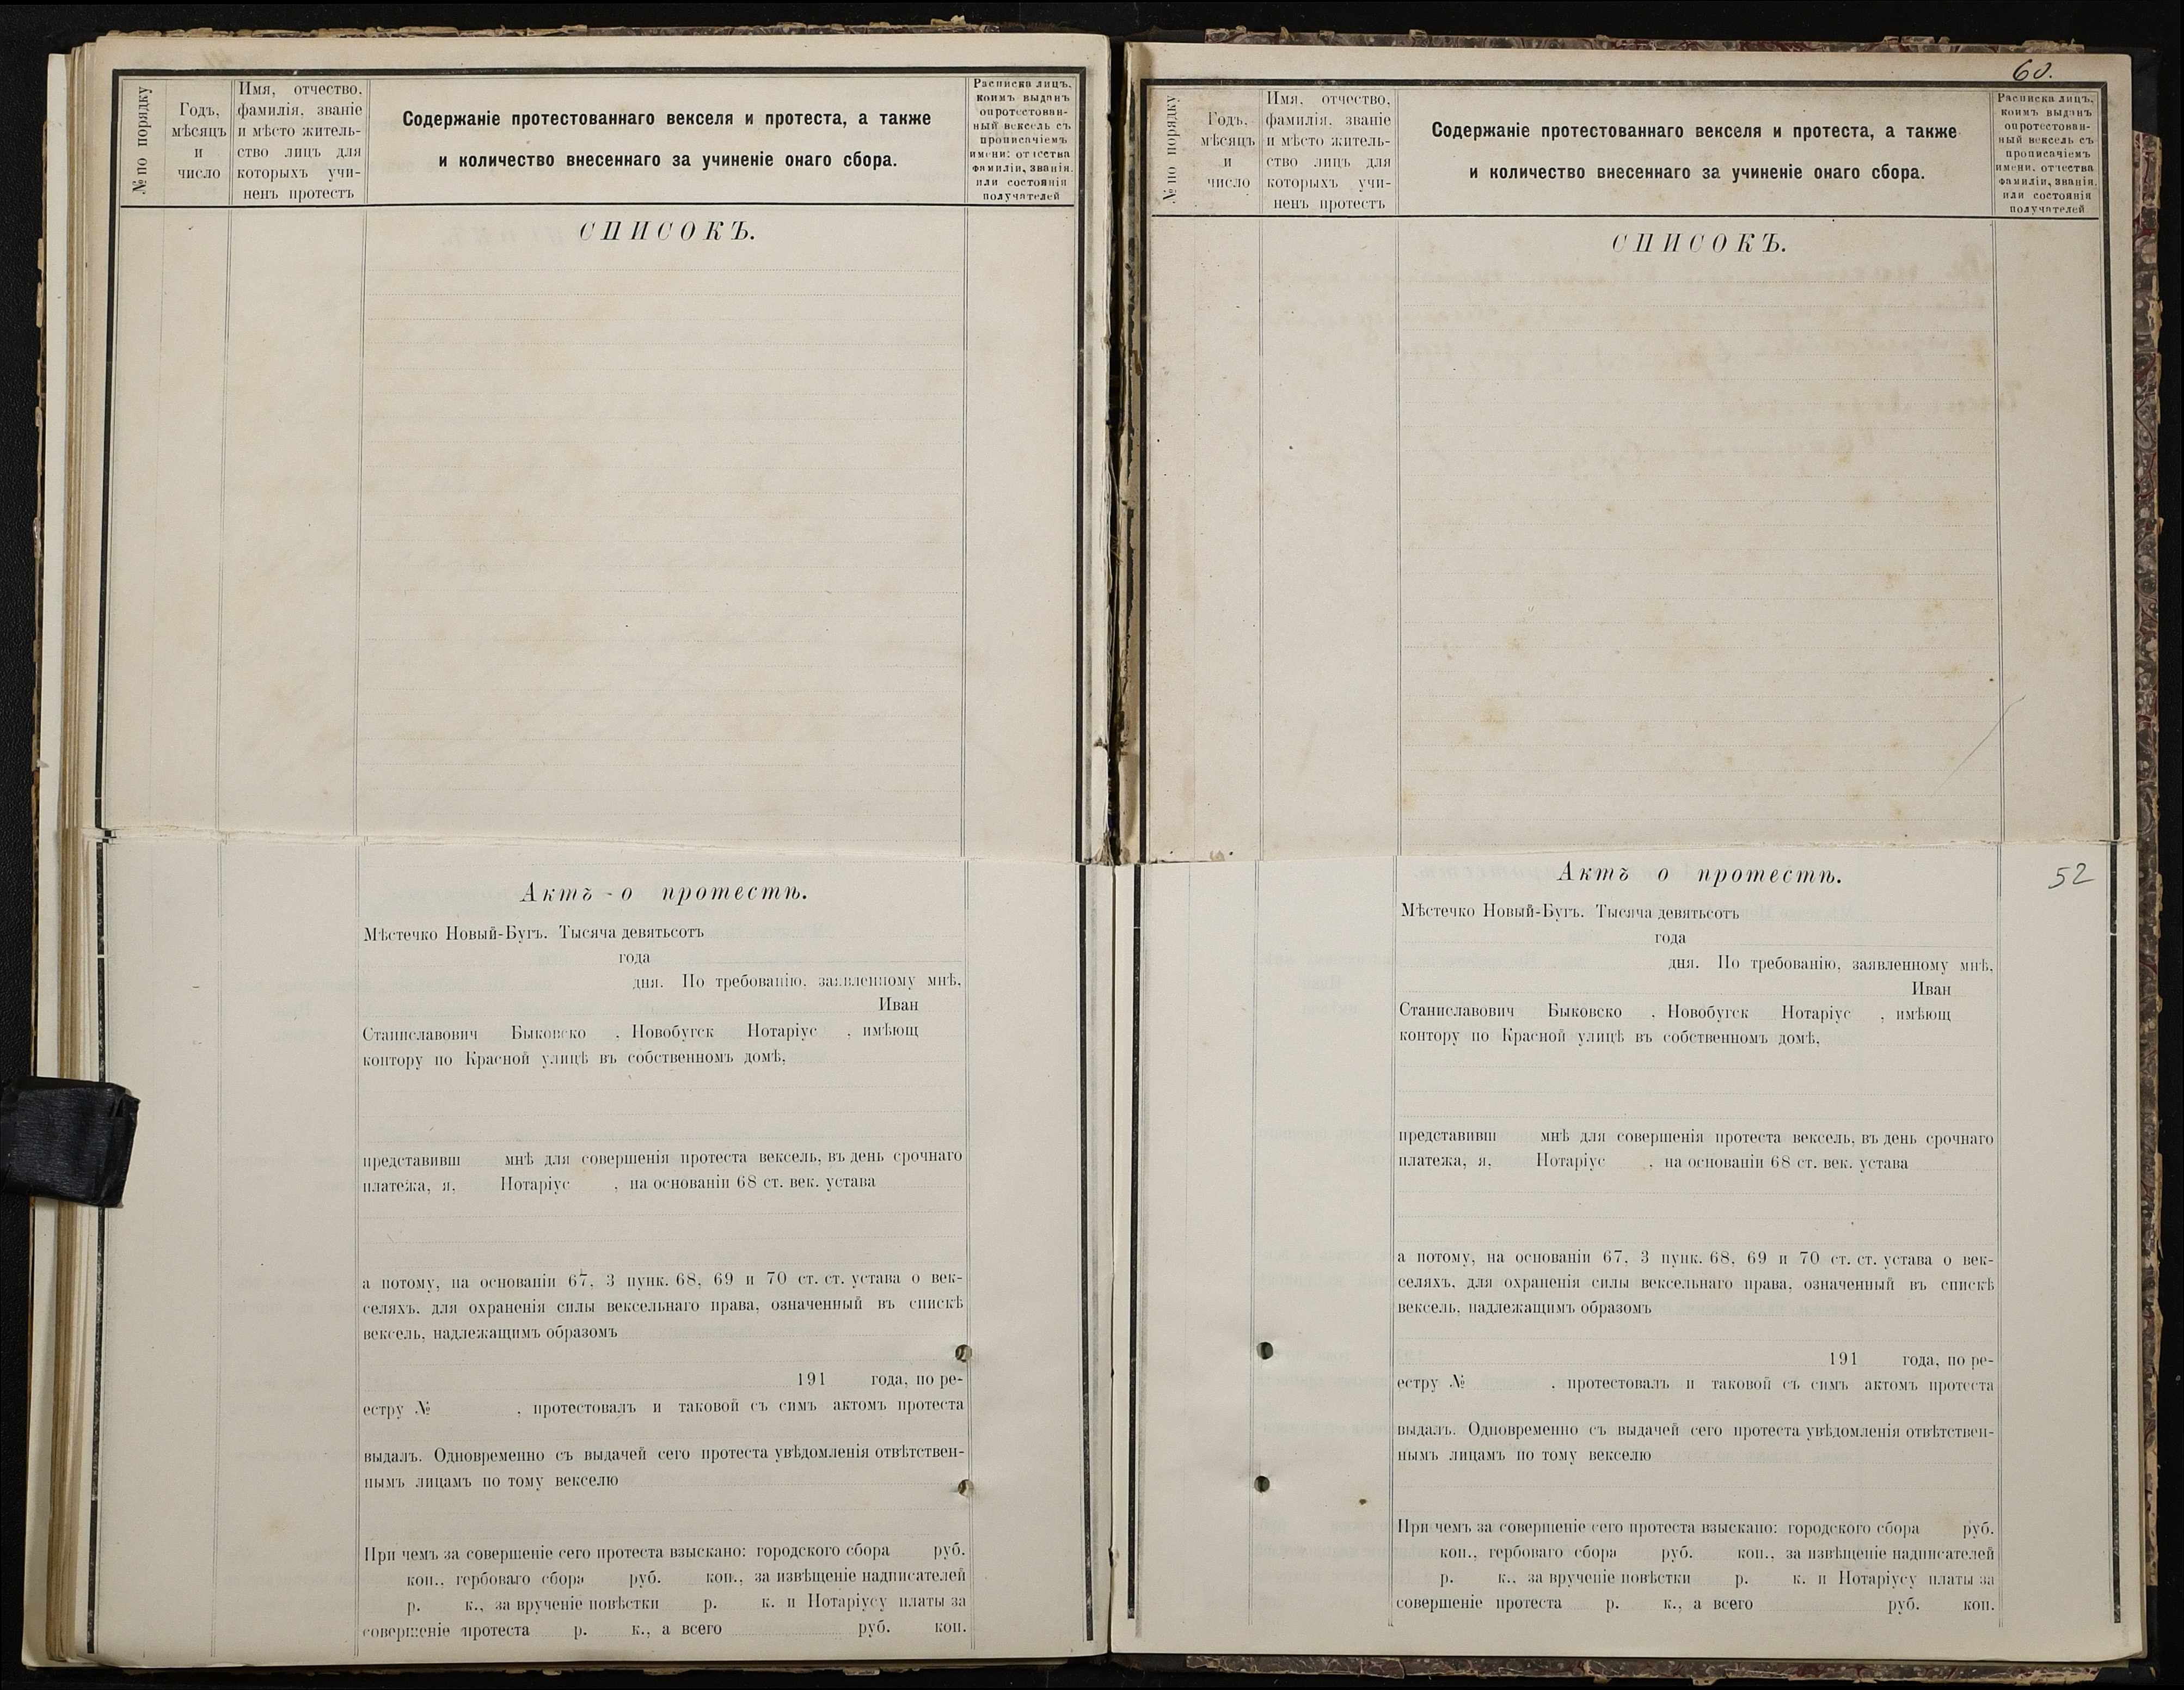 № по порядку
Годъ,
мѣсяцъ
и
число
Имя, отчество,
фамилія, званіе
и мѣсто житель-
ство лицъ для
которыхъ учи-
ненъ протестъ
Содержаніе протестованнаго векселя и протеста, а также
и количество внесеннаго за учиненіе онаго сбора.
Расписка лицъ,
коимъ выданъ
опротестован-
ный вексель съ
прописаніемъ
имени, отчества
фамиліи, званія,
или состоянія
получателей
СПИСОКЪ.
Актъ о протестѣ.
Мѣстечко Новый-Бугъ. Тысяча девятьсотъ
года
дня. По требованію, заявленному мнѣ,
Иван
Станиславович Быковско , Новобугск Нотаріус , имѣющ
контору по Красной улицѣ въ собственномъ домѣ,
представивш мнѣ для совершенія протеста вексель, въ день срочнаго
платежа, я, Нотаріус , на основаніи 68 ст. век. устава
а потому, на основаніи 67, 3 пунк. 68, 69 и 70 ст. ст. устава о век-
селяхъ, для охраненія силы вексельнаго права, означенный въ спискѣ
вексель, надлежащимъ образомъ
191 года, по ре-
естру № , протестовалъ и таковой съ симъ актомъ протеста
выдалъ. Одновременно съ выдачей сего протеста увѣдомленія отвѣтствен-
нымъ лицамъ по тому векселю
При чемъ за совершеніе сего протеста взыскано: городского сбора руб.
коп., гербоваго сбора руб. коп., за извѣщеніе надписателей
р. к., за врученіе повѣстки р. к. и Нотаріусу платы за
совершеніе протеста р. к., а всего руб. коп.
60.
№ по порядку
Годъ,
мѣсяцъ
и
число
Имя, отчество,
фамилія, званіе
и мѣсто житель-
ство лицъ для
которыхъ учи-
ненъ протестъ
Содержаніе протестованнаго векселя и протеста, а также
и количество внесеннаго за учиненіе онаго сбора.
Расписка лицъ,
коимъ выданъ
опротестован-
ный вексель съ
прописаніемъ
имени, отчества
фамиліи, званія,
или состоянія
получателей
СПИСОКЪ.
Актъ о протестѣ.
52
Мѣстечко Новый-Бугъ. Тысяча девятьсотъ
года
дня. По требованію, заявленному мнѣ,
Иван
Станиславович Быковско , Новобугск Нотаріус , имѣющ
контору по Красной улицѣ въ собственномъ домѣ,
представивш мнѣ для совершенія протеста вексель, въ день срочнаго
платежа, я, Нотаріус , на основаніи 68 ст. век. устава
а потому, на основаніи 67, 3 пунк. 68, 69 и 70 ст. ст. устава о век-
селяхъ, для охраненія силы вексельнаго права, означенный въ спискѣ
вексель, надлежащимъ образомъ
191 года, по ре-
естру № , протестовалъ и таковой съ симъ актомъ протеста
выдалъ. Одновременно съ выдачей сего протеста увѣдомленія отвѣтствен-
нымъ лицамъ по тому векселю
При чемъ за совершеніе сего протеста взыскано: городского сбора руб.
коп., гербоваго сбора руб. коп., за извѣщеніе надписателей
р. к., за врученіе повѣстки р. к. и Нотаріусу платы за
совершеніе протеста р. к., а всего руб. коп.